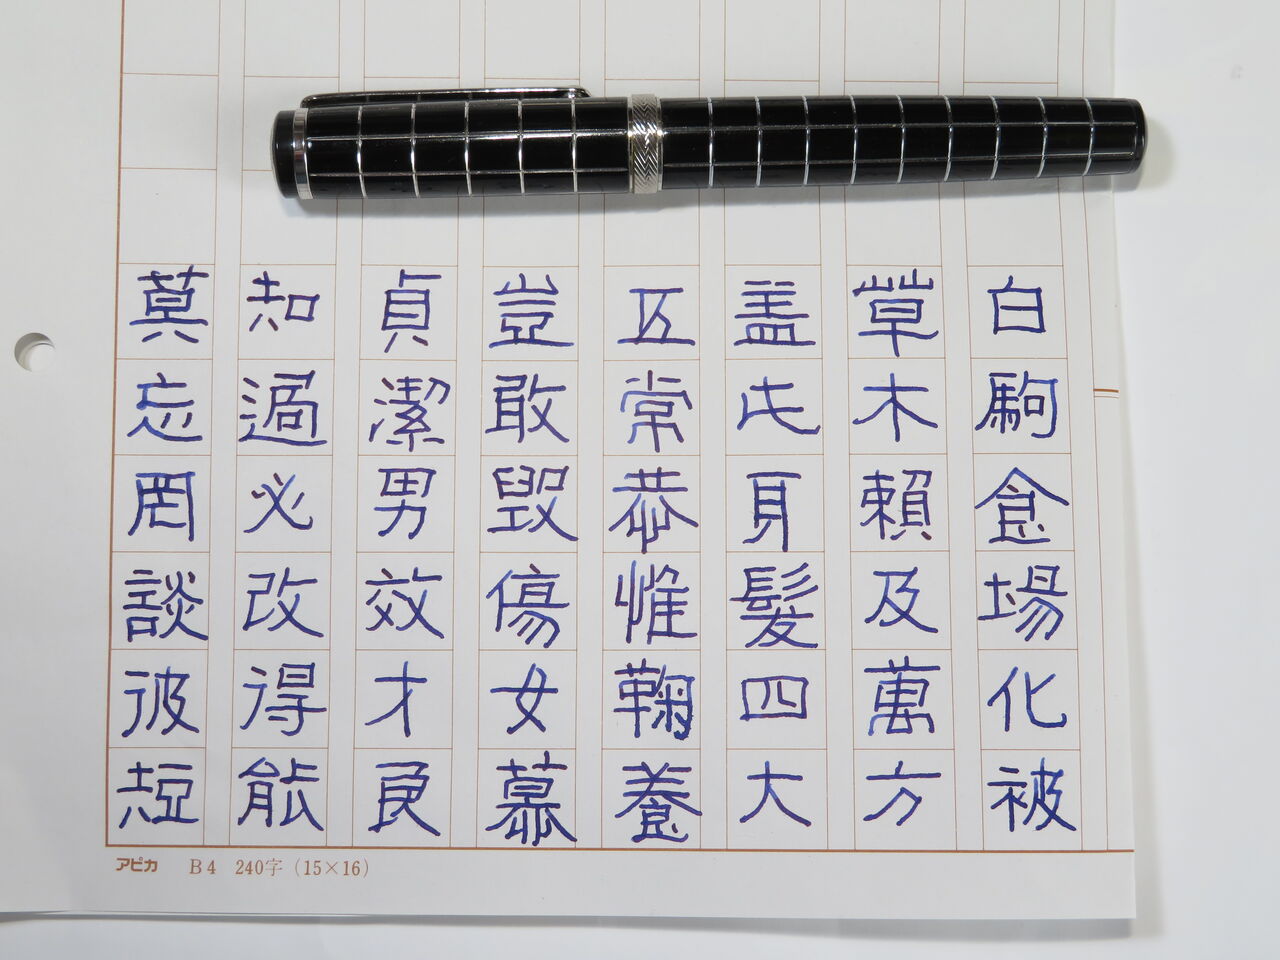 白駒食場化被
草木頼及萬方
盖此身髮四大
五常恭惟鞠養
豈敢毀傷女慕
貞潔男效才良
知過必改得能
莫忘罔談彼短
アピカ B4 240字 (15×16)